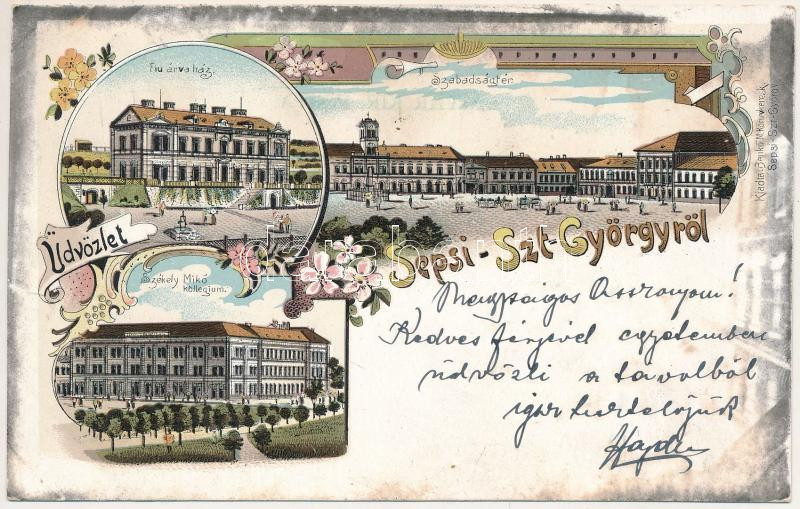 Fiu árvaház.
Szabadságtér.
Üdvözlet
Sepsi-Szt-Györgyről
Székely Mikó
kollégium.
Nagyságos Asszonyom!
Kedves férjével egyetemben
üdvözli a távolból
igaz tisztelőjük
Hajdu
Kiadta: Benkő
Sepsi-Szt-György